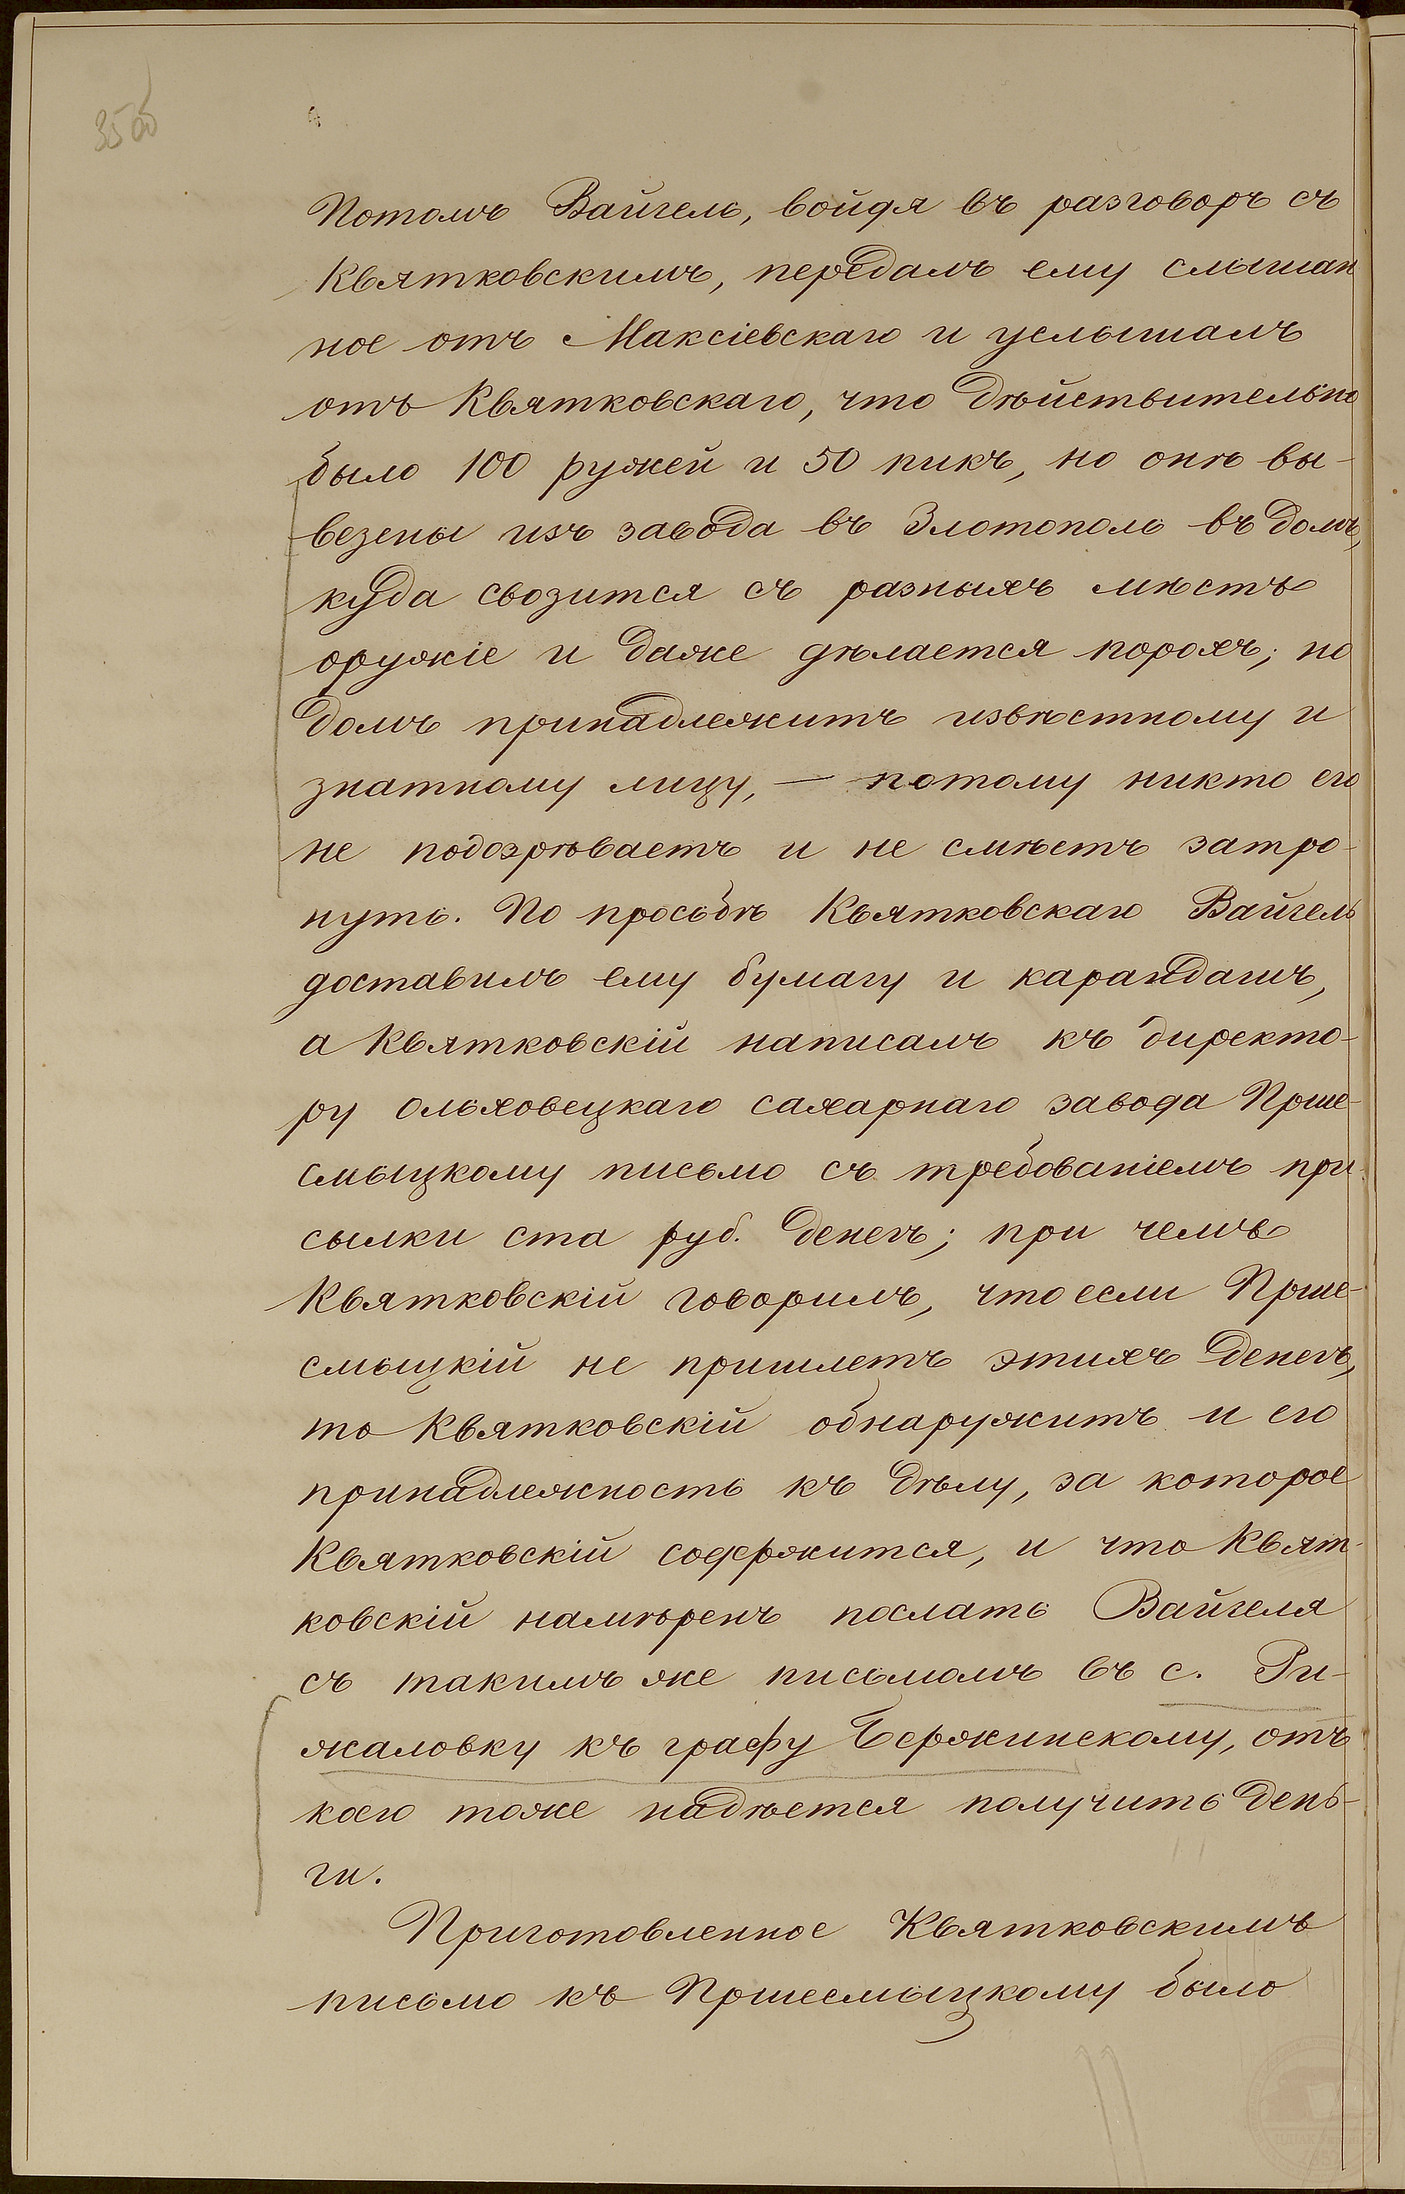 35об
Потомъ Вайгель, войдя въ разговоръ съ
Квятковскимъ, передалъ ему слышан
ное отъ Максіевскаго и услышалъ
отъ Квятковскаго, что дѣйствительно
было 100 ружей и 50 пикъ, но онѣ вы-
везены изъ завода въ Златополь въ домъ,
куда свозится съ разныхъ мѣстъ
оружіе и даже дѣлается порохъ; но
домъ принадлежитъ извѣстному и
знатному лицу, — потому никто его
не подозрѣваетъ и не смѣетъ затро-
нуть. По просьбѣ Квятковскаго Вайгель
доставилъ ему бумагу и карандашъ,
а Квятковскій написалъ къ директо-
ру Ольховецкаго сахарнаго завода Прше-
смыцкому письмо съ требованіемъ при-
сылки ста руб. денегъ; при чемъ
Квятковскій говорилъ, что если Прше-
смыцкій не пришлетъ этихъ денегъ,
то Квятковскій обнаружитъ и его
принадлежность къ дѣлу, за которое
Квятковскій содержится, и что Квят-
ковскій намѣренъ послать Вайгеля
съ такимъ же письмомъ въ с. Ри-
жаловку къ графу Бержинскому, отъ
коего тоже надѣется получить день-
ги.
Приготовленное Квятковскимъ
письмо къ Пршесмыцкому было